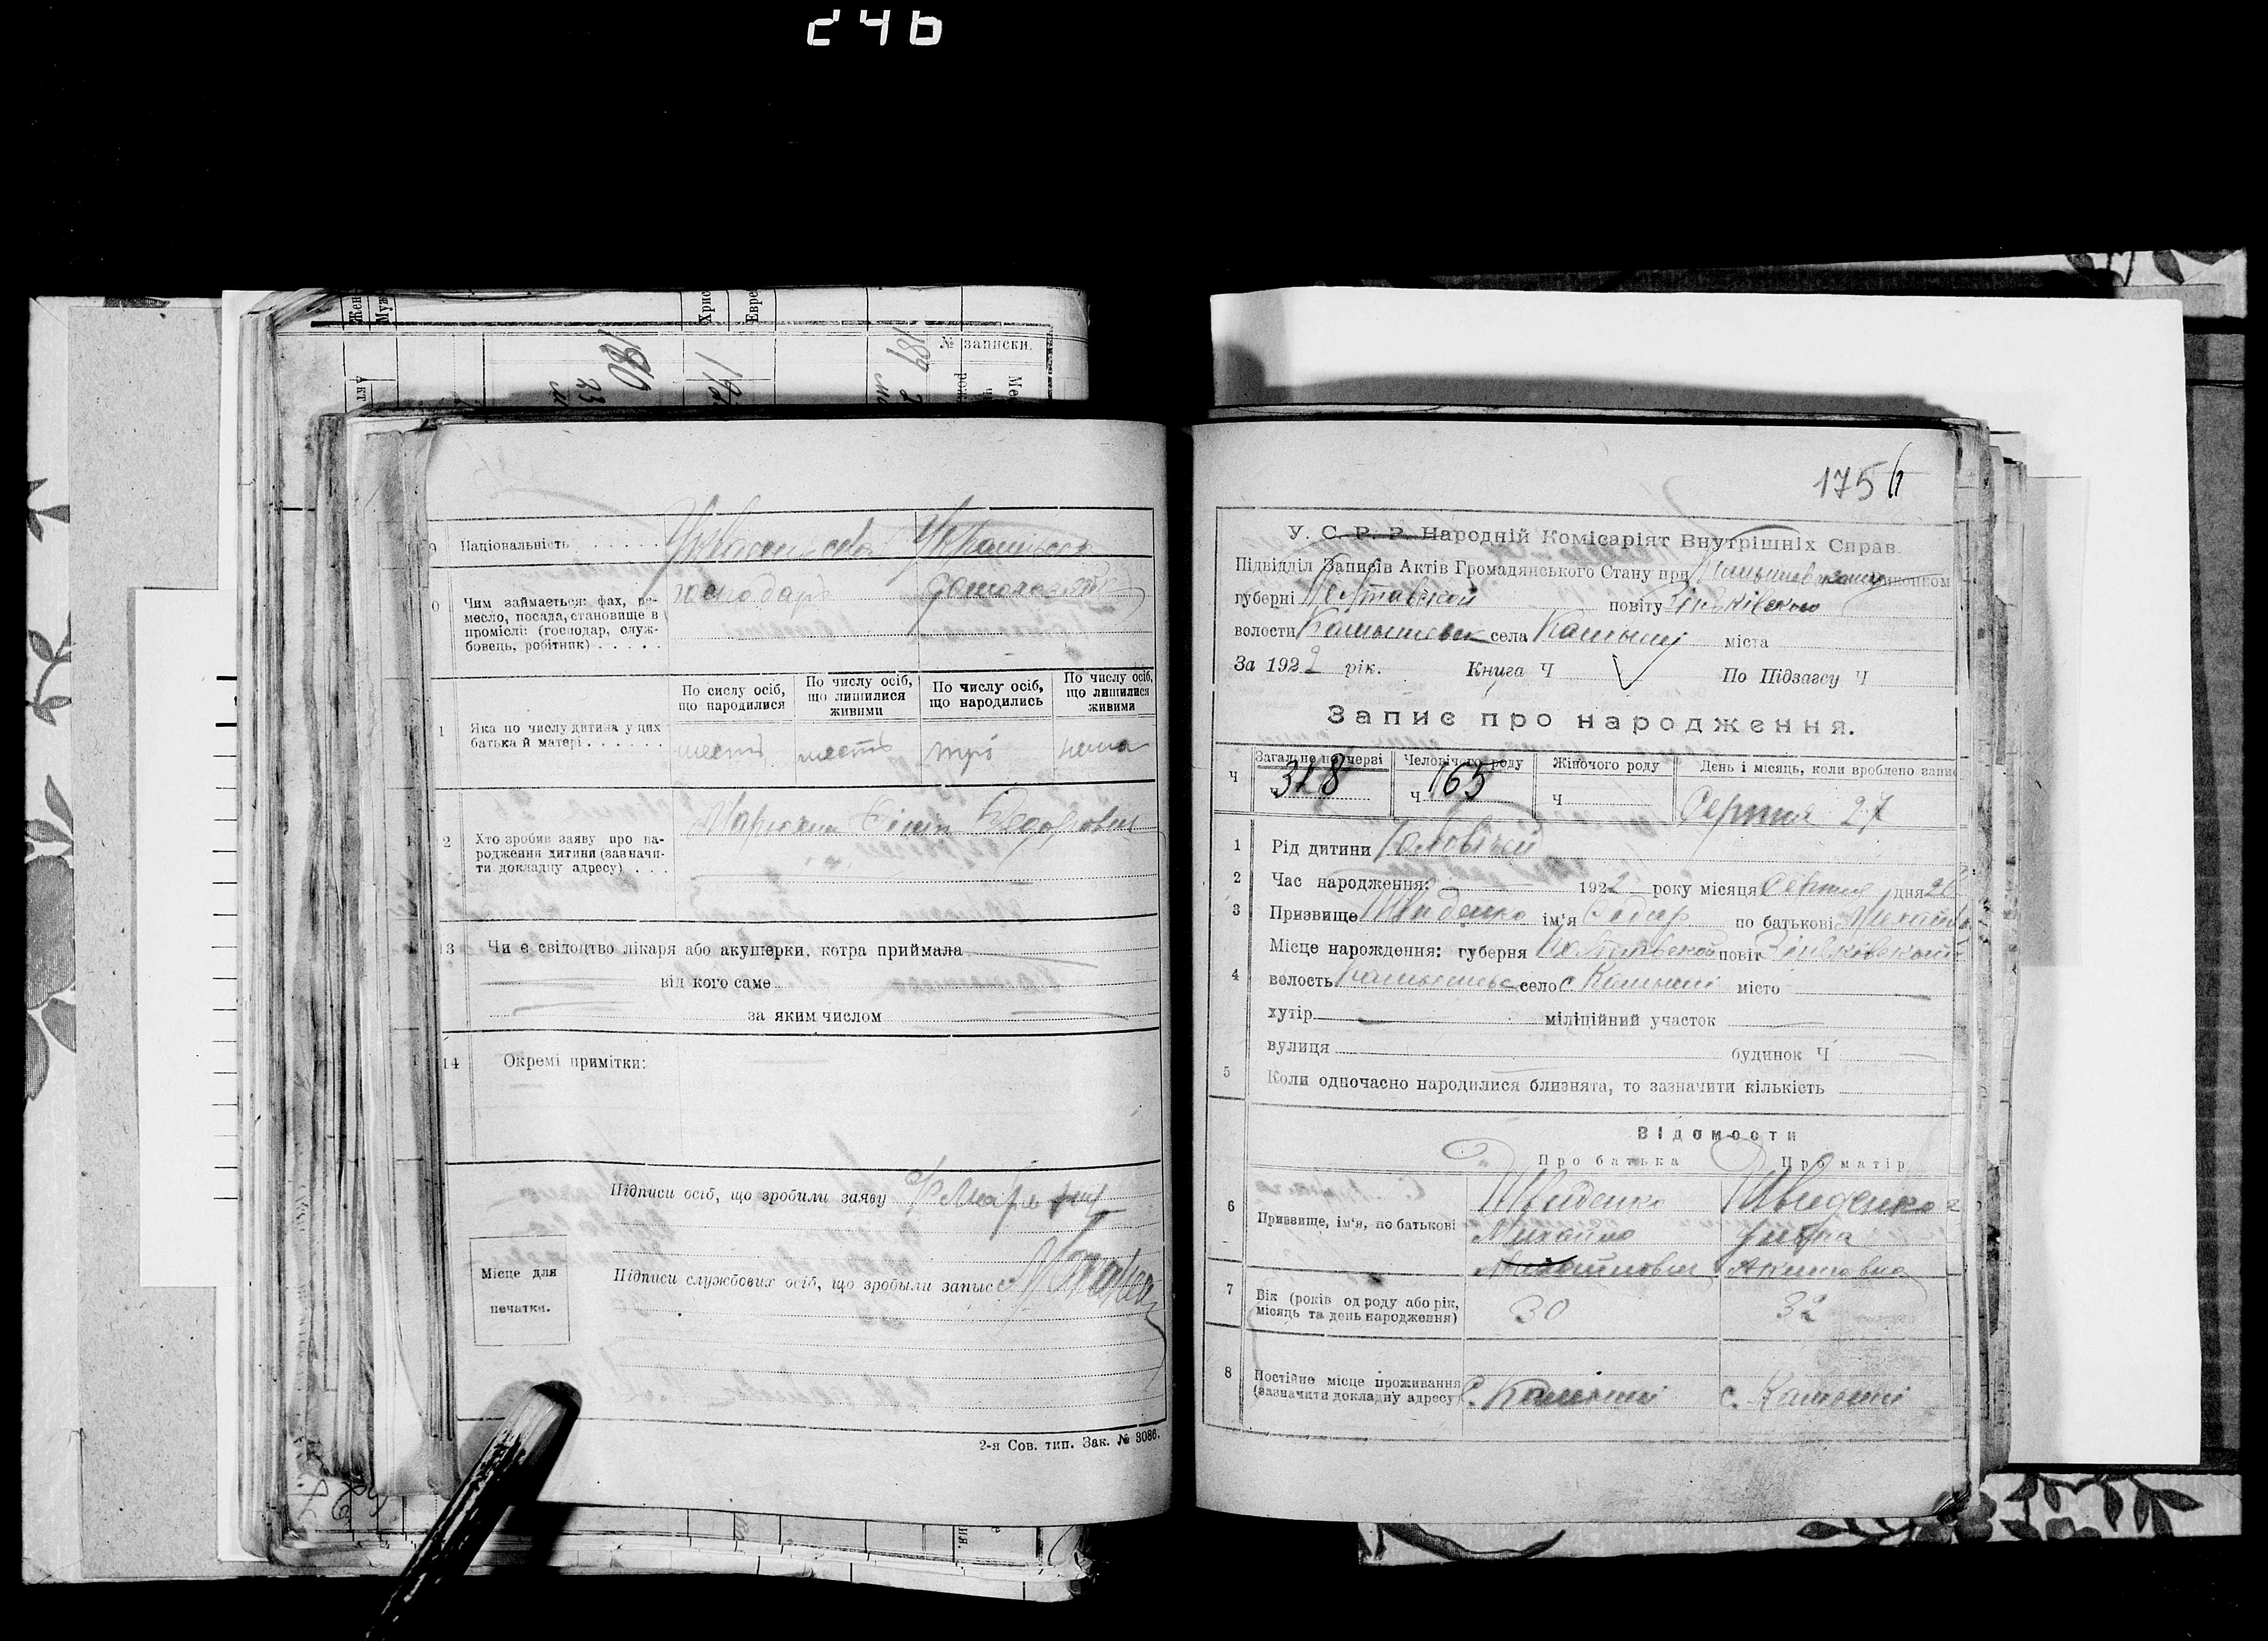 246
Жен
Муж
Хрис
Евре
№ записки.
189
180
23
Ме
рож
Акт
9 Національність Українська
0 Чим займається: фах, ре-
месло, посада, становище в
проміслі: (господар, служ-
бовець, робітник)
господарь
По сислу осіб, що народилися
По числу осіб, що лишилися живими
По числу осіб, що народились
По числу осіб, що лишилися живима
1 Яка по числу дитина у цих
батька й матері
шесть шесть три
2 Хто зробив заяву про на-
родження дитини (зазначи-
ти докладну адресу)
Федорович
13 Чи є свідоцтво лікаря або акушерки, котра приймала
від кого саме
за яким числом
14 Окремі примітки:
Підписи осіб, що зробили заяву
Місце для
печатки.
Підписи службових осіб, що зробыли запис
2-я Сов. тип. Зак. № 3086.
175
У. С. Р. Р. Народній Комісаріят Внутрішніх Справ.
Підвідділ Записів Актів Громадянського Стану при виконком
губерні Полтавской повіту Зіньківского
волости села Камыши міста
За 1922 рік. Книга Ч По Підзагсу Ч
Запис про народження.
Ч
Загальне по черзі
Ч 318
Человічого роду
Ч 165
Жіночого роду
Ч
День і місяць, коли вроблено запис
Серпня 27
1 Рід дитини Чоловічий
2 Час народження: 1922 року місяця Серпня дня 26
3 Призвище Швиденко ім'я Федир по батькові
4 Місце нарождення: губерня Полтавской повіт Зіньківский
волость село с Камыши місто
хутір міліційний участок
вулиця будинок Ч
5 Коли одночасно народилися близнята, то зазначити кількість
Відомости
Про батька Про матір
6 Призвище, ім'я, по батькові
Швиденко Швиденко
Михайло
Михайлович
7 Вік (років од роду або рік,
місяць та день народження)
30 32
8 Постійне місце проживання
(зазначити докладну адресу)
с. Камыши с. Камыши